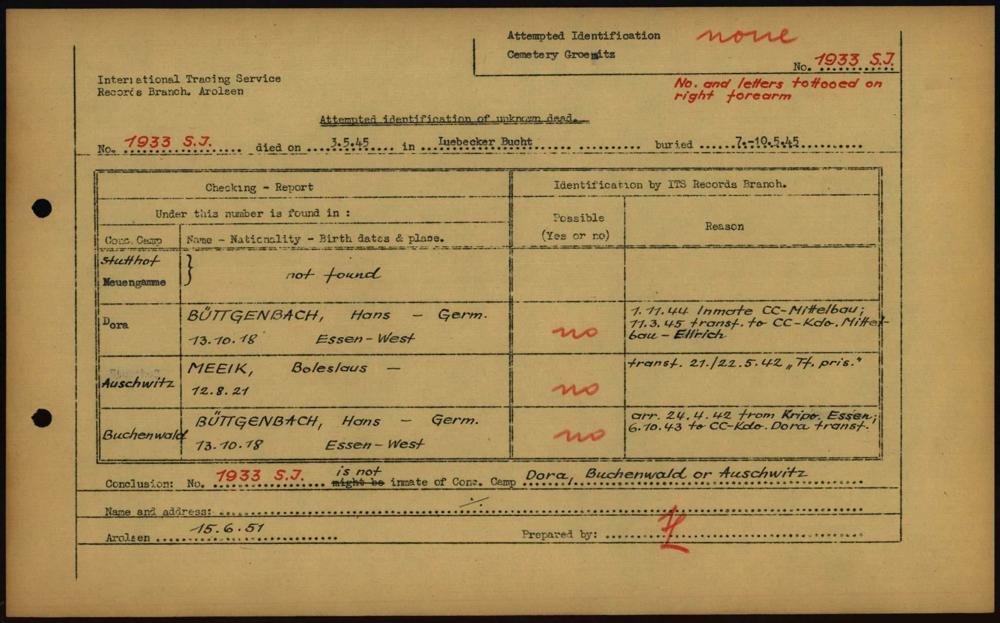 Attempted Identification none
Cemetery Groemitz
No. 1933 S.J.
International Tracing Service
Records Branch. Arolsen
No. and letters tattooed on
right forearm
Attempted identification of unknown dead.
No. 1933 S.J. died on 3.5.45 in Luebecker Bucht buried 7.-10.5.45
Checking - Report Identification by ITS Records Branch.
Under this number is found in : Possible Reason
Conc. Camp Name - Nationality - Birth dates & place. (Yes or no)
Stutthof
Neuengamme } not found
Dora BÜTTGENBACH, Hans - Germ. no 1.11.44 Inmate CC-Mittelbau;
13.10.18 Essen-West 11.3.45 transf. to CC-Kdo. Mittel-
bau - Ellrich
Auschwitz MEEIK, Boleslaus - no transf. 21./22.5.42 „Tf. pris."
12.8.21
Buchenwald BÜTTGENBACH, Hans - Germ. no arr. 24.4.42 from Kripo Essen;
13.10.18 Essen-West 6.10.43 to CC-Kdo. Dora transf.
Conclusion: No. 1933 S.J. is not might be inmate of Conc. Camp Dora, Buchenwald or Auschwitz
Name and address: ·/.
Arolsen 15.6.51 Prepared by: